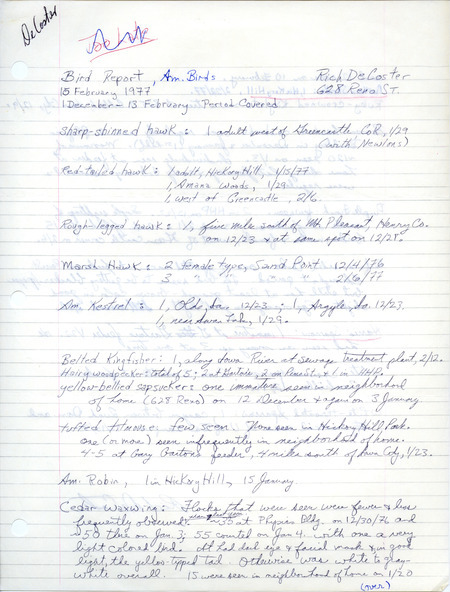 DeCoster
Bird Report, Am. Birds Rich DeCoster
15 February 1977 628 Reno St.
1 December - 13 February Period Covered
Sharp-shinned hawk: 1 adult west of Greencastle 1/29
(with Newlons)
Red-tailed hawk: 1 adult, Hickory Hill, 1/15/77
1, Amana Woods, 1/29
1, west of Greencastle, 2/6
Rough-legged hawk: 1, five miles south of Mt. Pleasant, Henry Co.
on 12/23 & at same spot on 12/25.
Marsh Hawk: 2 female type, Sand Point 12/4/76
3 " " " 2/6/77
Am. Kestrel: 1, 12/23; 1, Argyle, Ia. 12/23
1, near 1/29.
Belted Kingfisher: 1, along Iowa River at sewage treatment plant, 2/12.
Hairy woodpecker: total of 5; 2 at 2 on & 1 in HHP.
Yellow-bellied sapsucker: one immature seen in neighborhood
of home (628 Reno) on 12 December & again on 3 January.
Tufted titmouse: few seen. None seen in Hickory Hill Park.
One (or more) seen infrequently in neighborhood of home.
4-5 at Gary feeder, 4 miles south of Iowa City, 1/23.
Am. Robin, 1 in Hickory Hill, 15 January
Cedar Waxwing: Flocks that were seen were fewer & less
frequently observed. ~35 at Physics Bldg. on 12/20/76 and
~50 there on Jan. 3; 55 counted on Jan 4 with one a very
light colored bird. It had dark eye & facial mask & in good
light, the yellow-tipped tail. Otherwise was white to gray-
white overall. 15 were seen in neighborhood of home on 1/20
(over)